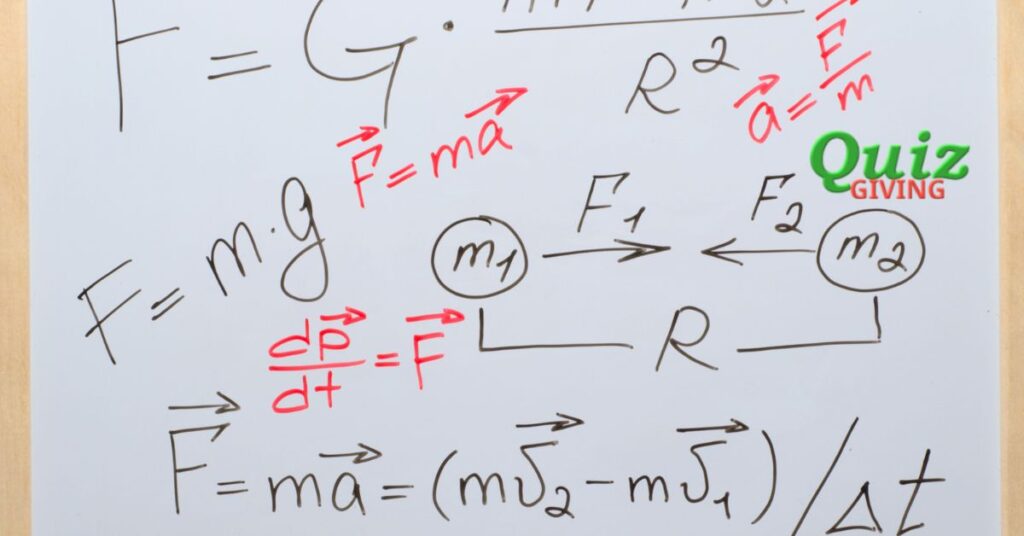 F = G ·
R²
a⃗ = F⃗/m
F⃗ = ma⃗
Quiz
GIVING
F = m·g
m₁ F₁ F₂ m₂
R
dp⃗/dt = F⃗
F⃗ = ma⃗ = (mv⃗₂ - mv⃗₁) / Δt